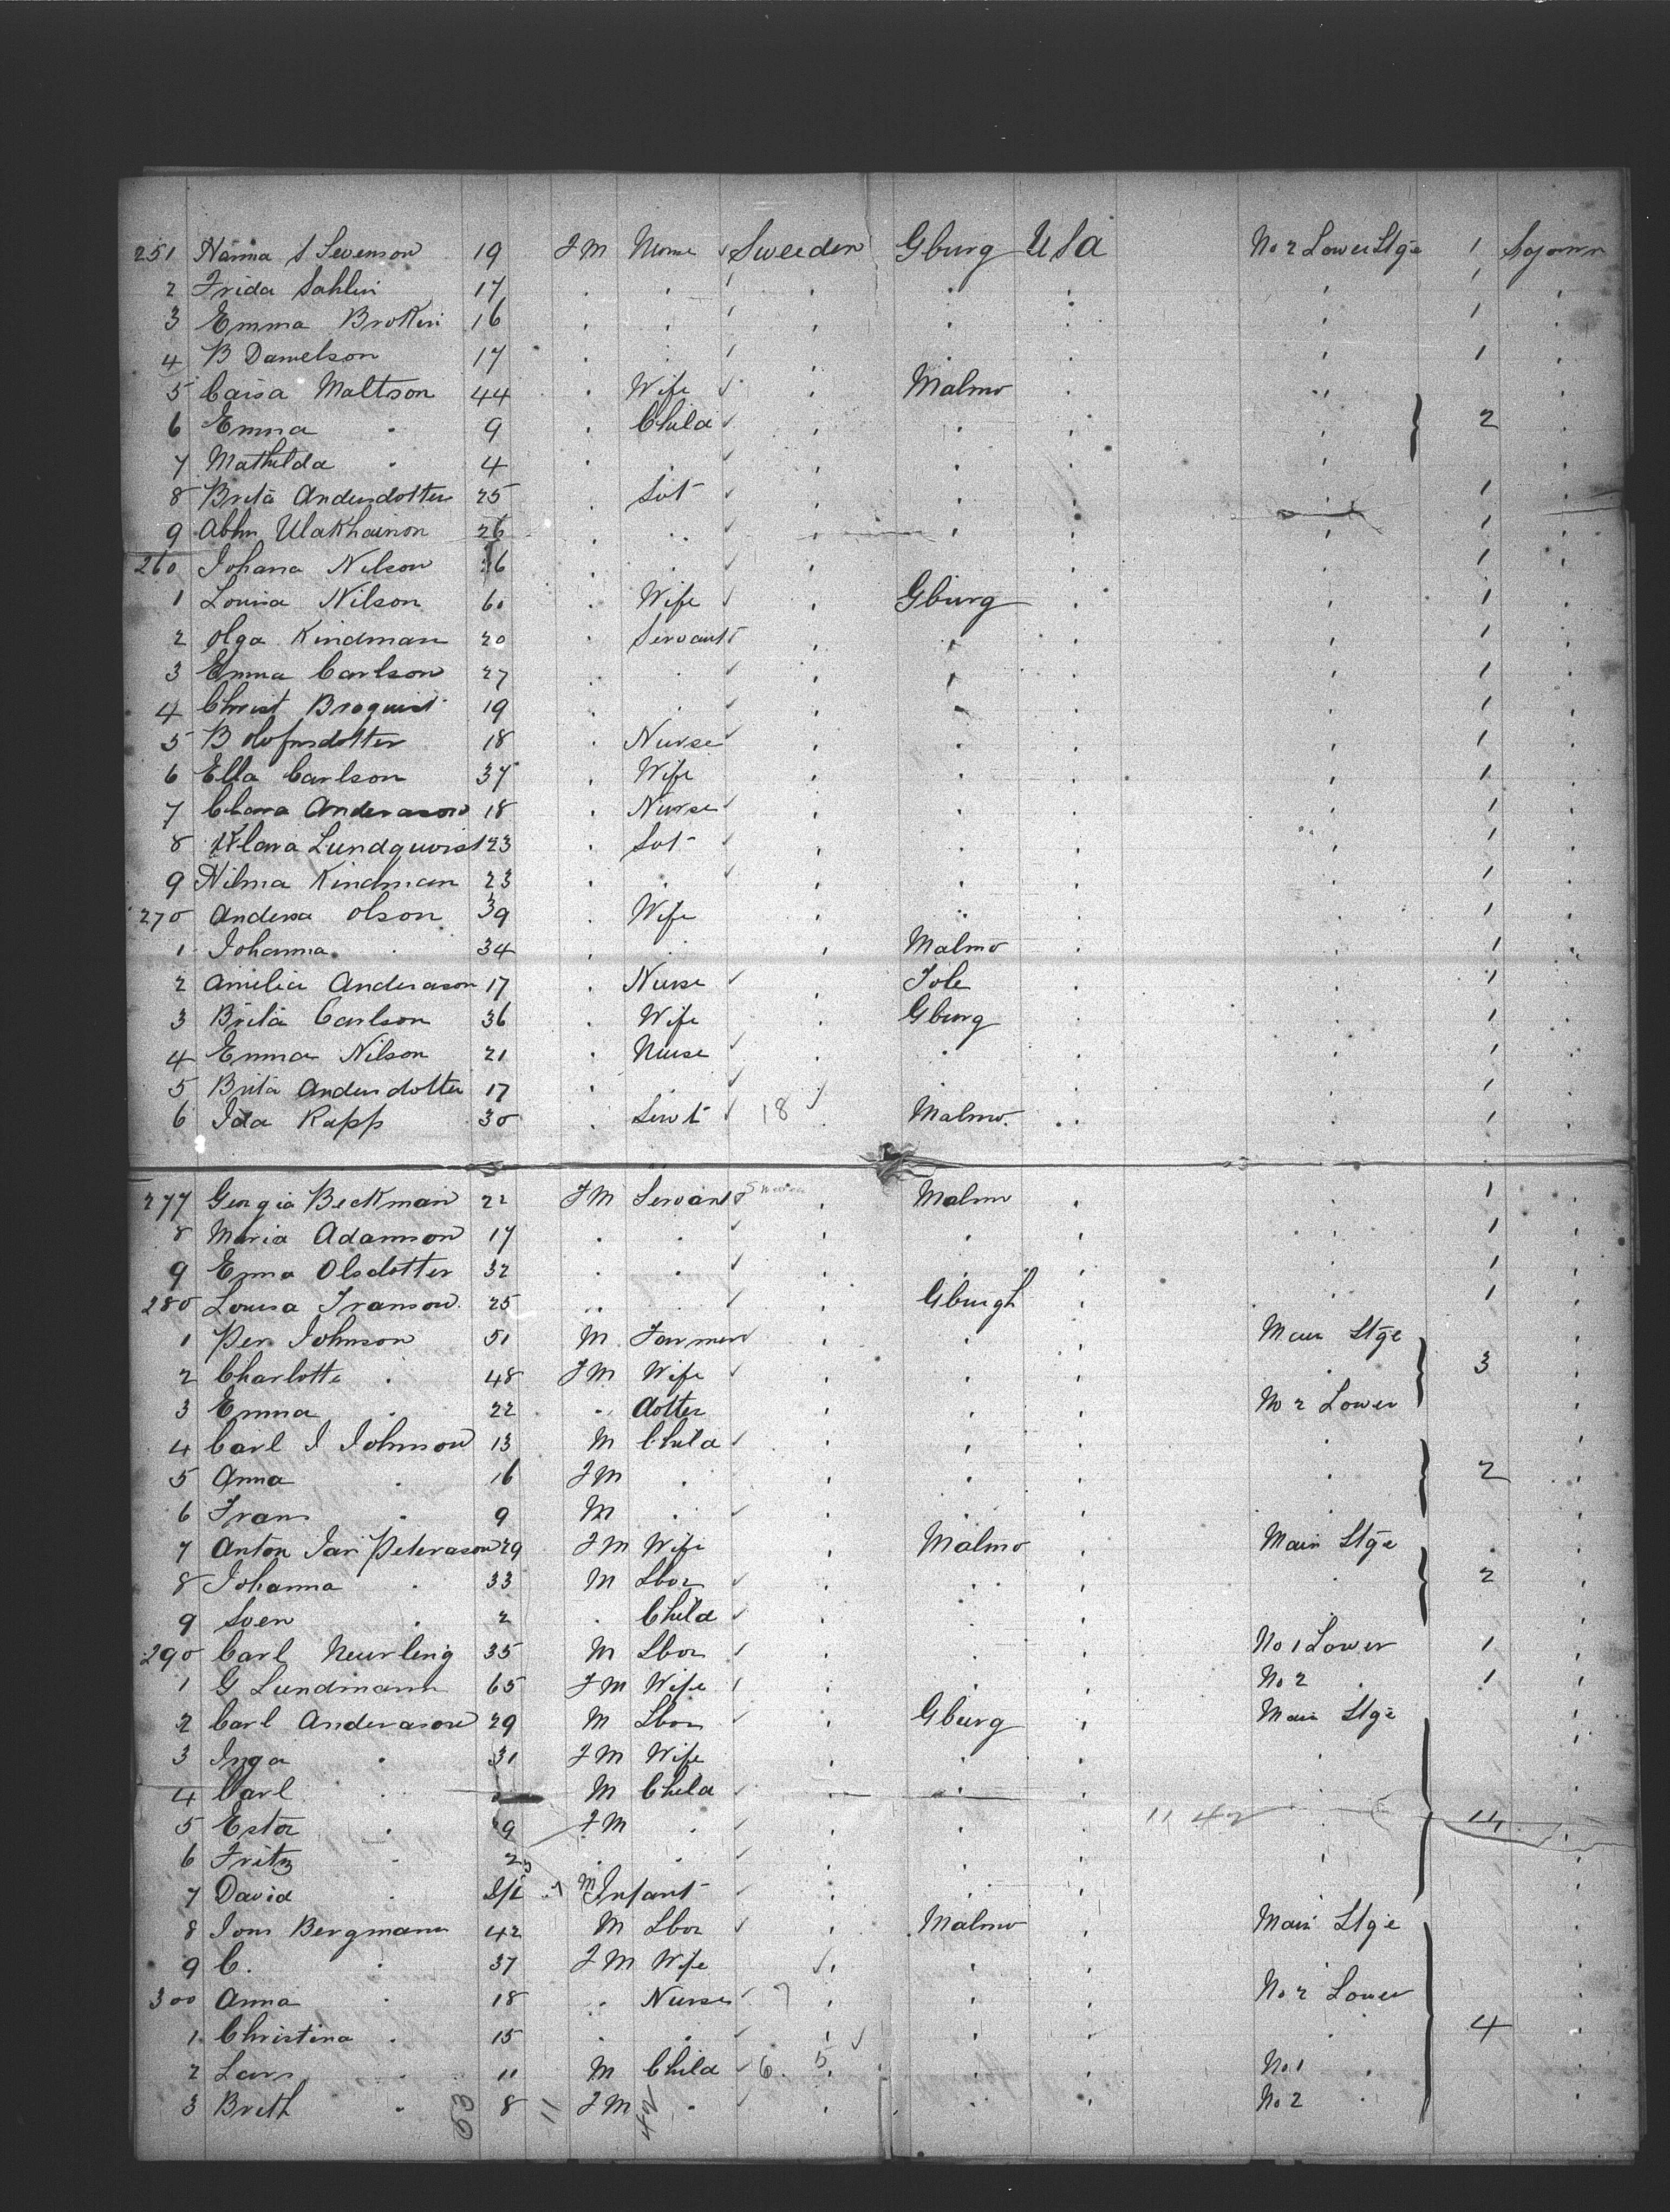 251 Hanna S Svenson 19 FM None Sweeden Gburg USa No 2 Lower Stge 1 Sojourn
2 Frida Sahlin 17 1
3 Emma Broken 16 1
4 B Danielson 17 1
5 Caisa Mattson 44 Wife Malmo
6 Emma 9 Child 2
7 Mathilda 4
8 Brita Andersdotter 25 Svt 1
9 26 1
260 Johana Nilson 1
1 Louisa Nilson 60 Wife Gburg 1
2 Olga Kindman 20 Servant 1
3 Emma Carlson 27 1
4 Christ Broquist 19 1
5 B Olofsdotter 18 Nurse 1
6 Ella Carlson 37 Wife 1
7 Clara Anderason 18 Nurse 1
8 Klara Lundquvist 23 Svt 1
9 Hilma Kindman 23 1
270 Andera Olson 39 Wife 1
1 Johanna 34 Malmo 1
2 Amelia Anderason 17 Nurse 1
3 Brita Carlson 36 Wife Gburg 1
4 Emma Nilson 21 Nurse 1
5 Brita Andersdotter 17 1
6 Ida Rapp 30 Servt 18 Malmo. 1
277 Georgia Beckman 22 FM Servant Malmo 1
8 Maria Adamson 17 1
9 Emma Olsdotter 32 1
280 Louisa Iranson 25 Gburgh 1
1 Per Johnson 51 M Farmer Main Stge
2 Charlotte 48 FM Wife 3
3 Emma 22 dotter No 2 Lower
4 Carl J Johnson 13 M Child
5 Anna 16 FM 2
6 Frans 9 M
7 Anton Jan Peterason 29 FM Wife Malmo Main Stge
8 Johanna 33 M Lbor 2
9 Sven 2 Child
290 Carl Neurling 35 M Lbor No 1 Lower 1
1 G Lundmann 65 FM Wife No 2 1
2 Carl Anderason 29 M Lbor Gburg Main Stge
3 Inga 31 FM Wife
4 Carl M Child
5 Ester 9 FM 11 42
6 Fritz
7 David M Infant
8 Jons Bergmann 42 M Lbor Malmo Main Stge
9 C. 37 FM Wife
300 Anna 18 Nurse 7 No 2 Lower
1 Christina 15 4
2 Lars 11 M Child 6 5 No 1
3 Breth 8 FM No 2
53 11 42